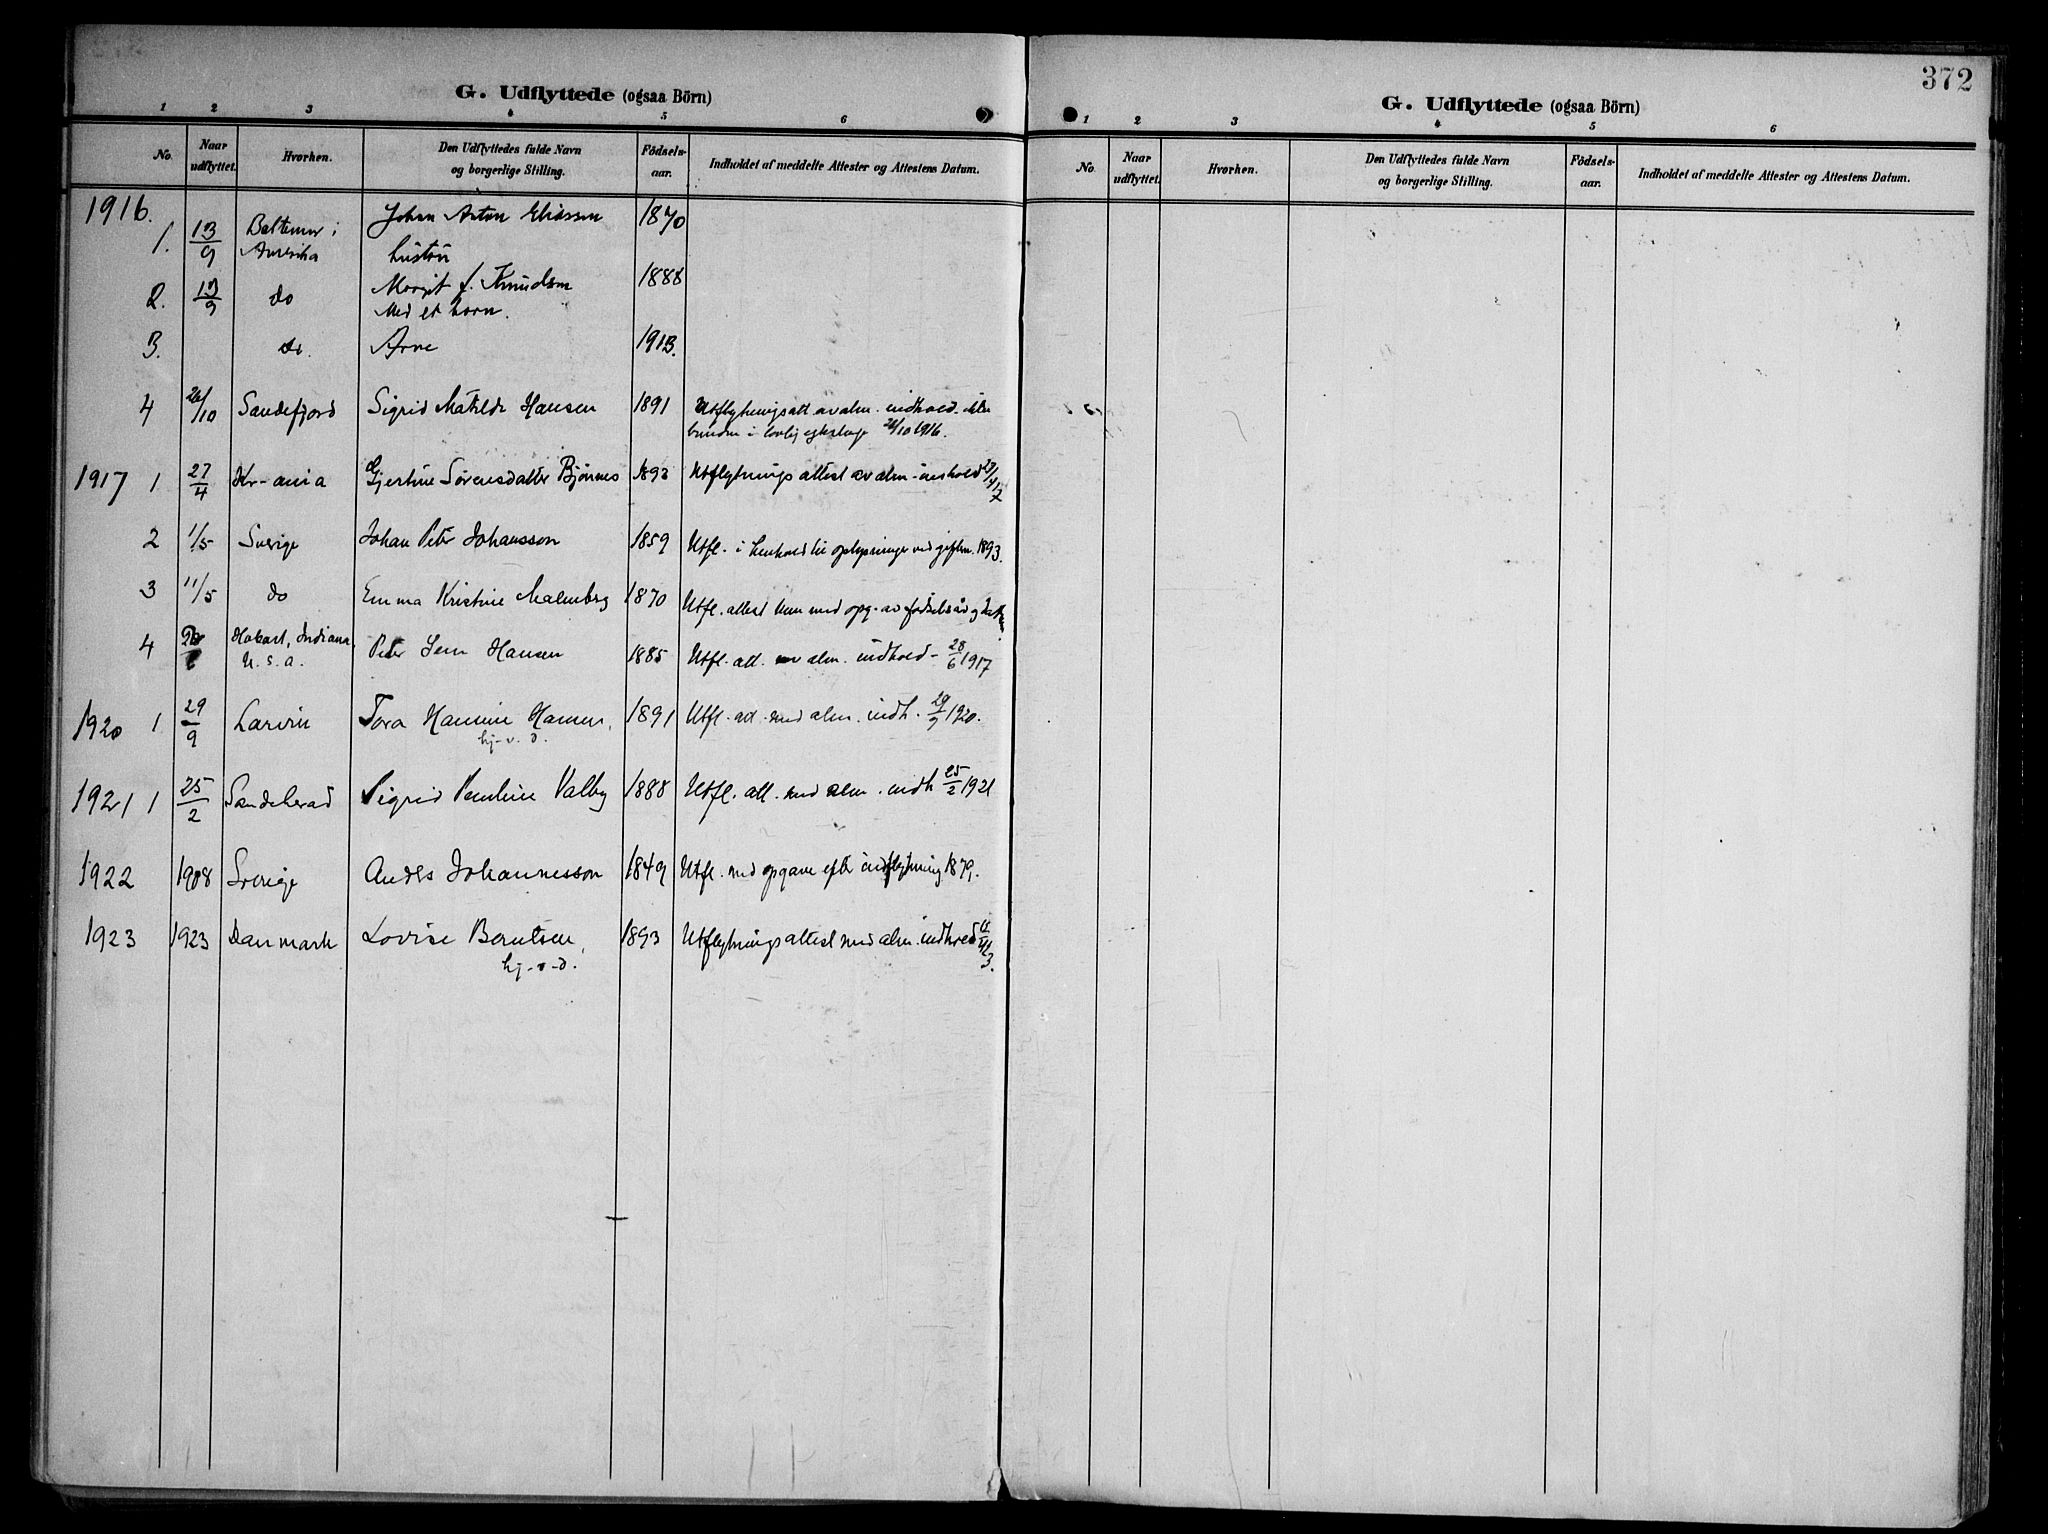 372
G. Udflyttede (ogsaa Börn)
1 2 3 4 5 6
No. Naar udflyttet. Hvorhen. Den Udflyttedes fulde Navn og borgerlige Stilling. Födsels-aar. Indholdet af meddelte Attester og Attestens Datum.
1916.
1. 13/9 Baltemor i Amerika Johan Anton Eliassen 1870
2. 13/9 do Margit f. Knudsen 1888
Med et barn.
3. do. Arne 1913.
4 26/10 Sandefjord Sigrid Matilde Hansen 1891 Utflytningsatt av alm. indhold. ikke
bunden i lovlig 26/10 1916.
1917 1 27/4 Kr-ania Gjertine Sørensdatter Bjønnes 1893 Utflytnings attest av alm. indhold 27/4 17
2 1/5 Sverige Johan Peter Johansson 1859 Utfl. i henhold til oplysninger ved giften. 1893.
3 11/5 do Emma Kristine Malmberg 1870 Utfl. attest kun med opg. av fødselsår og
4 Hobart, Indiana, U.S.A. Peter Sem Hansen 1885 Utfl. att. av alm. indhold - 28/6 1917
1920 1 29/9 Larvik Tora Hansen, 1891 Utfl. att. med alm. indh. 29/9 1920.
hj-v. d.
1921 1 25/2 Sandeherad Sigrid Pauline Valby 1888 Utfl. att. med alm. indh 25/2 1921
1922 1908 Sverige Anders Johannesson 1849 Utfl. med opgave efter indflytning 1879.
1923 1923 Danmark Lovise Berntsen, 1893 Utflytningsattest med alm. indhold
hj-v-d.
G. Udflyttede (ogsaa Börn)
1 2 3 4 5 6
No. Naar udflyttet. Hvorhen. Den Udflyttedes fulde Navn og borgerlige Stilling. Födsels-aar. Indholdet af meddelte Attester og Attestens Datum.